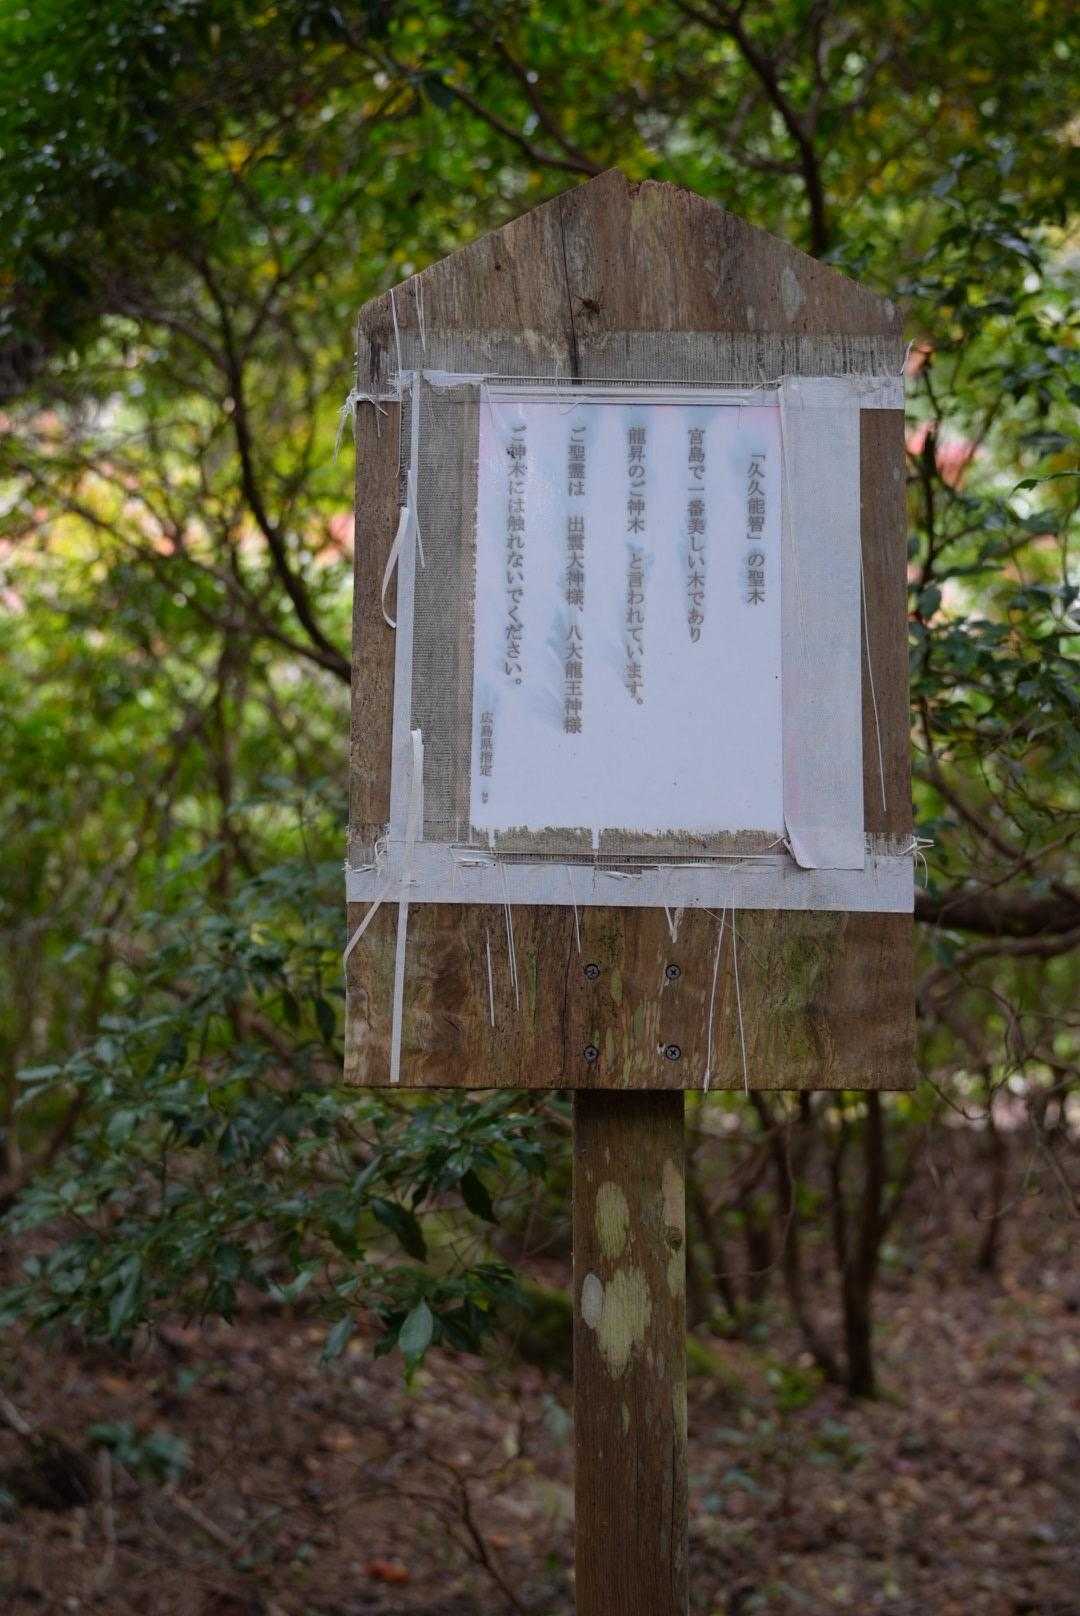 「久久能智」の聖木
宮島で一番美しい木であり
龍昇のご神木 と言われています。
ご聖霊は 出雲大神様、八大龍王神様
ご神木には触れないでください。
広島県指定